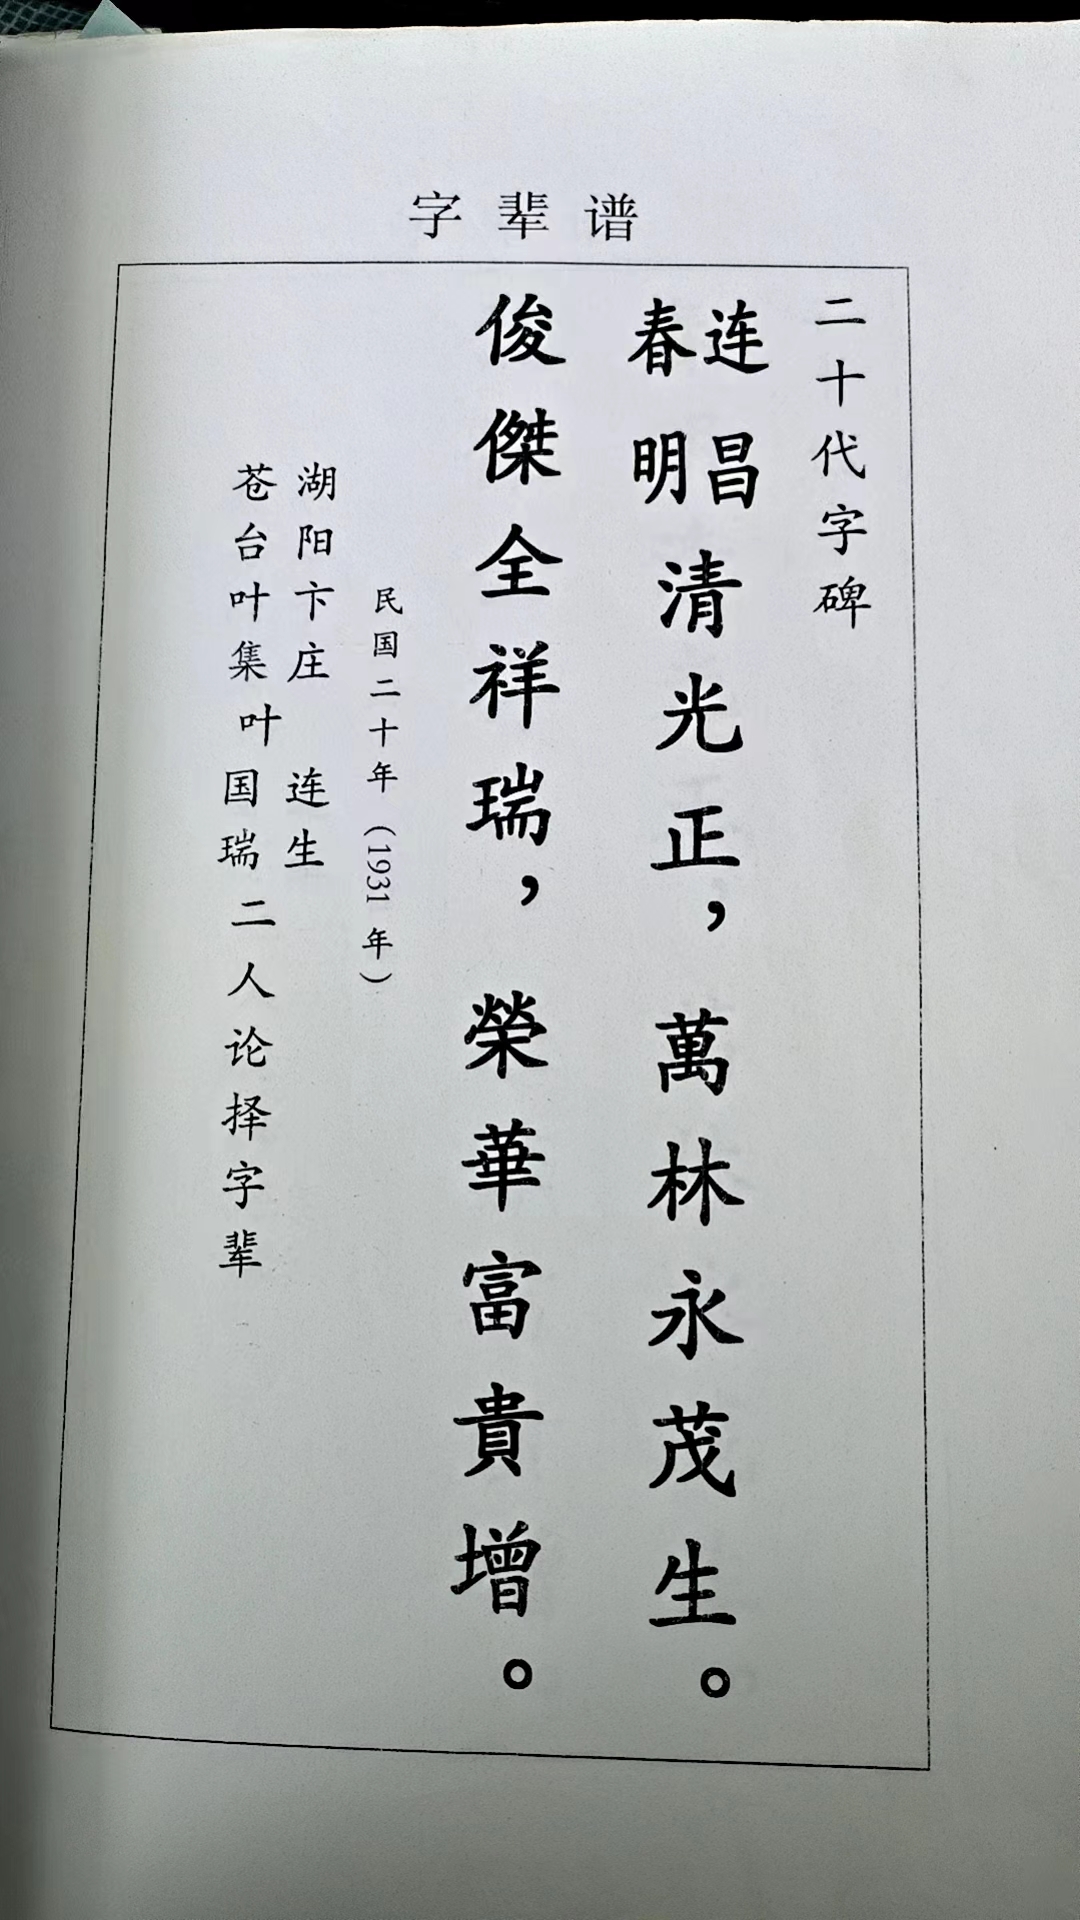 字辈谱
二十代字碑
连昌
春明
清光正，萬林永茂生。
俊傑全祥瑞，榮華富貴增。
民国二十年（1931年）
湖阳卞庄 连生
苍台叶集叶国瑞
二人论择字辈